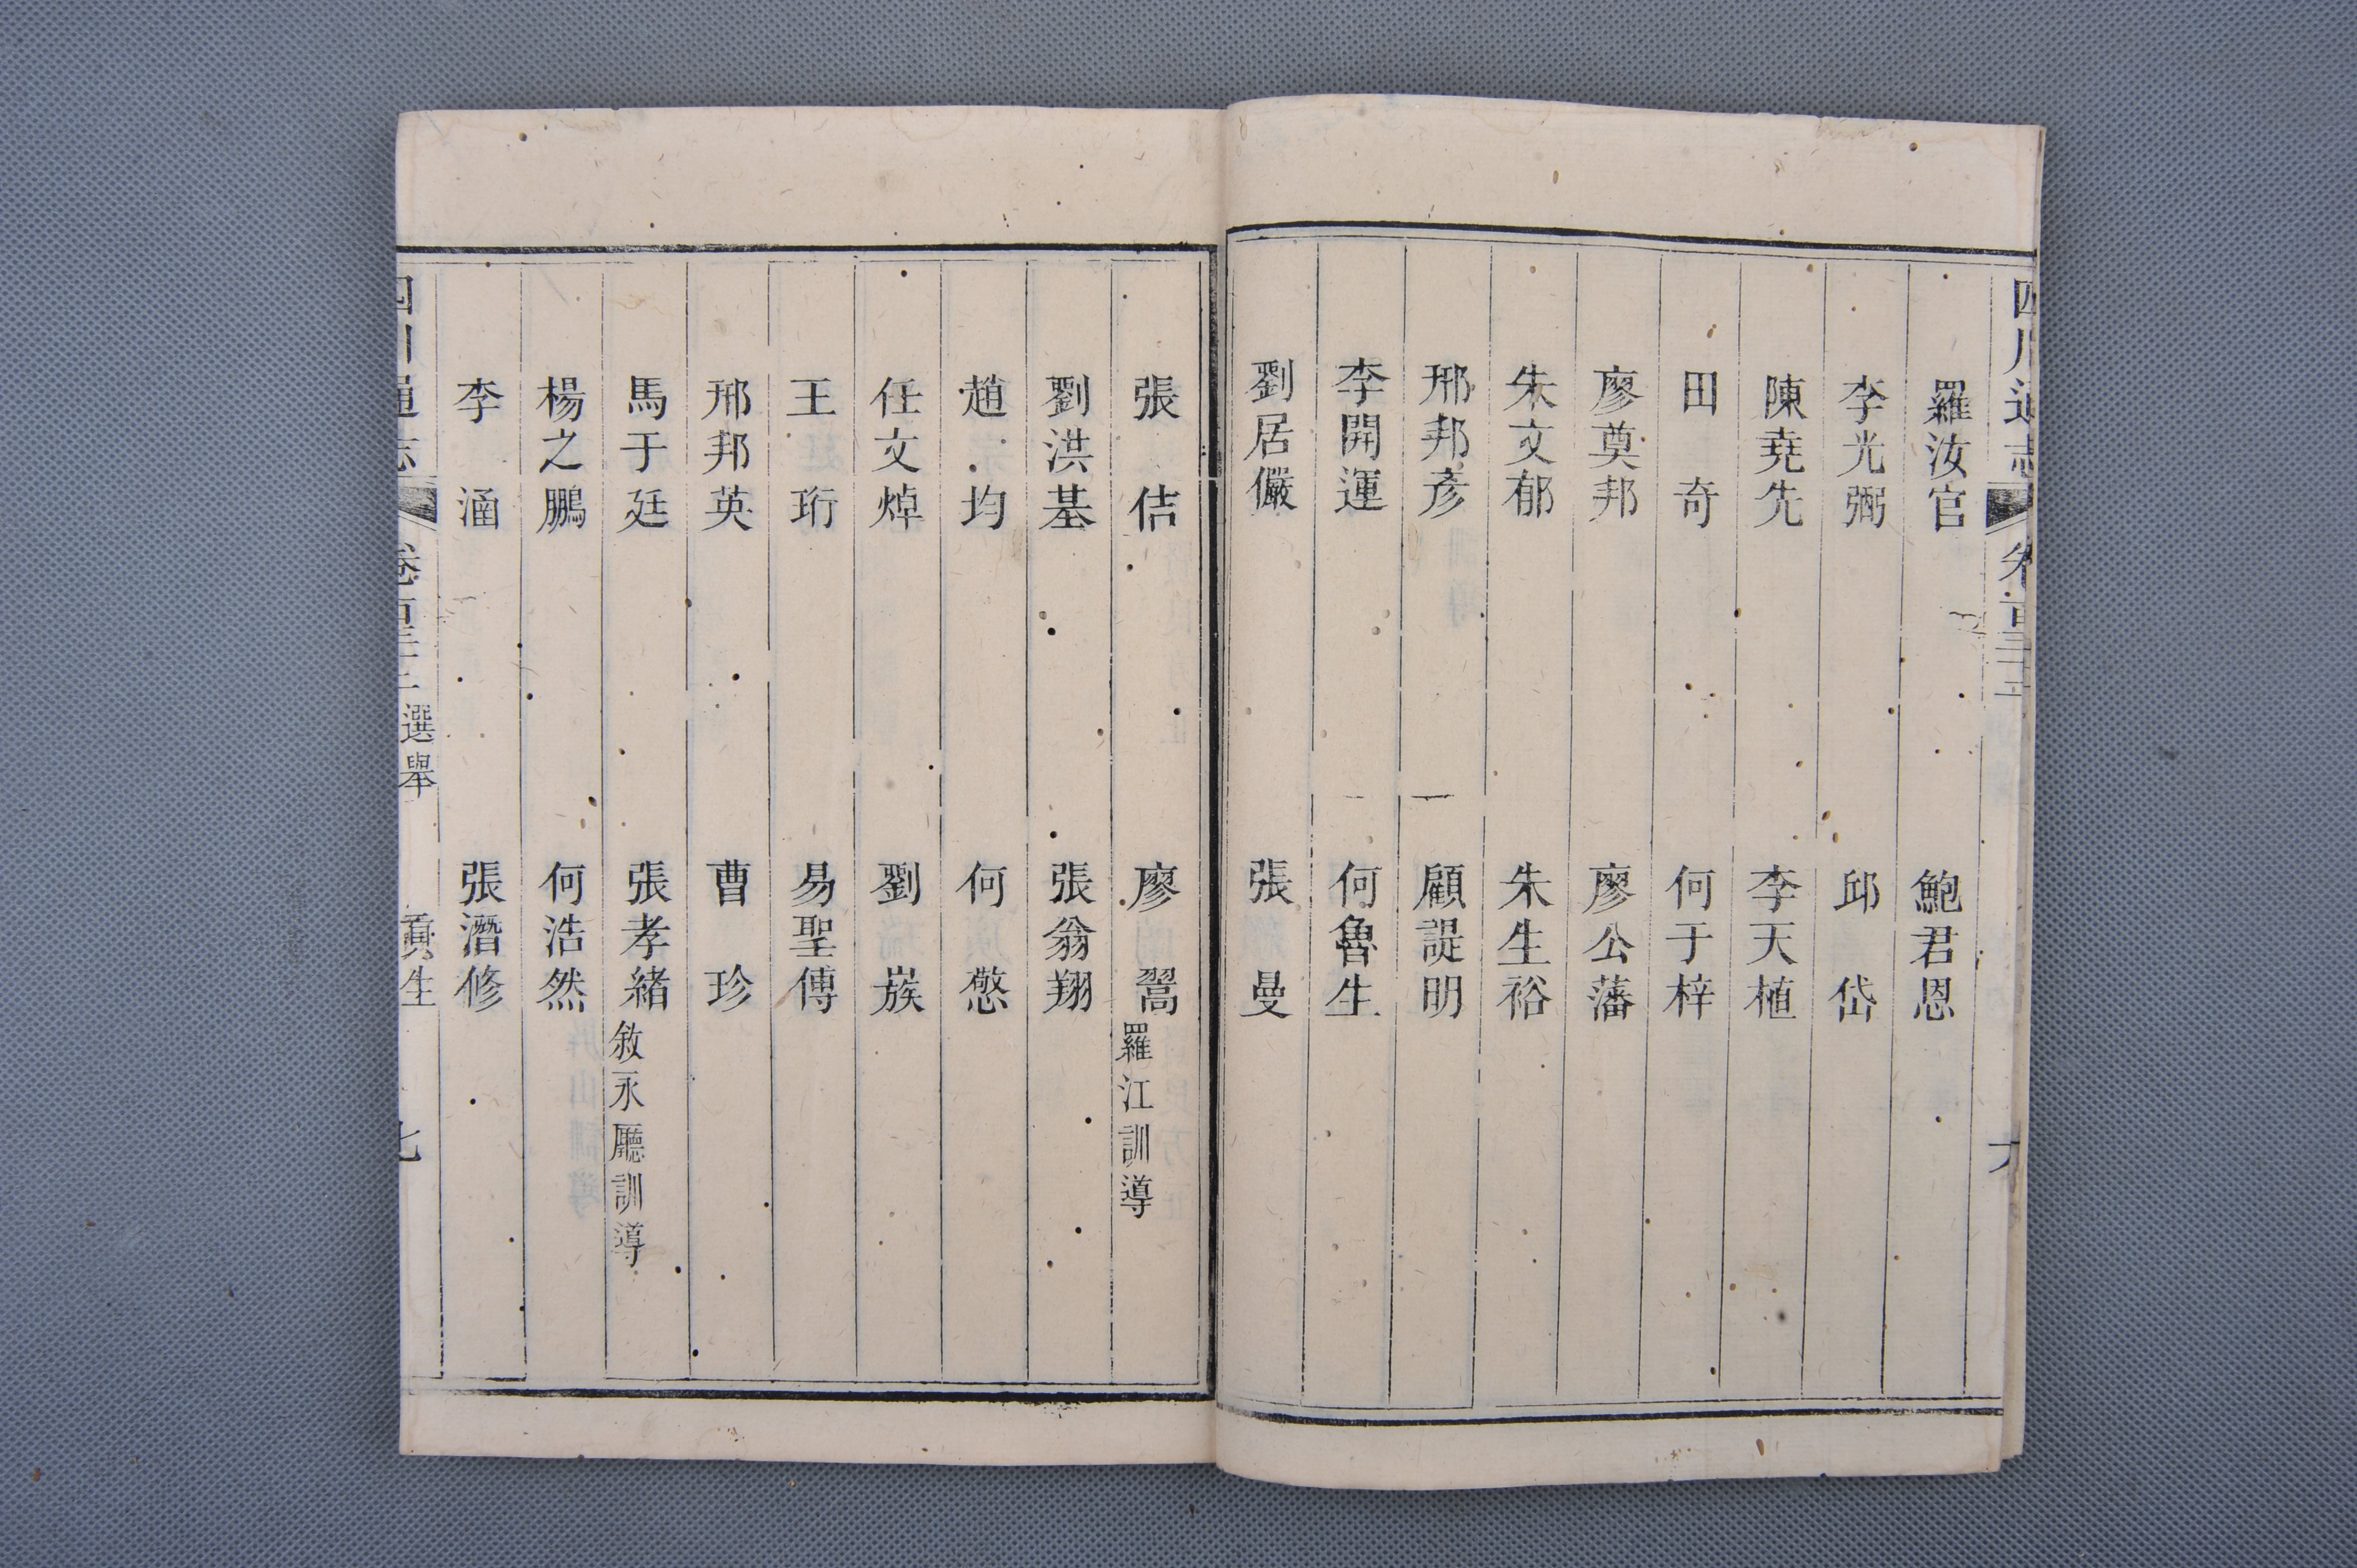 四川通志
羅汝官 鮑君恩
李光弼 邱岱
陳堯先 李天植
田奇 何于梓
廖奠邦 廖公藩
朱文郁 朱生裕
邢邦彥 顧諟明
李開運 何魯生
劉居儼 張曼
張佶 廖翯羅江訓導
劉洪基 張翁翔
趙均 何慗
任文焯 劉嶡
王珩 易聖傳
邢邦英 曹珍
馬于廷 張孝緒敘永廳訓導
楊之鵬 何浩然
李涵 張潛修
四川通志 卷一百三十二 選舉 貢生 七